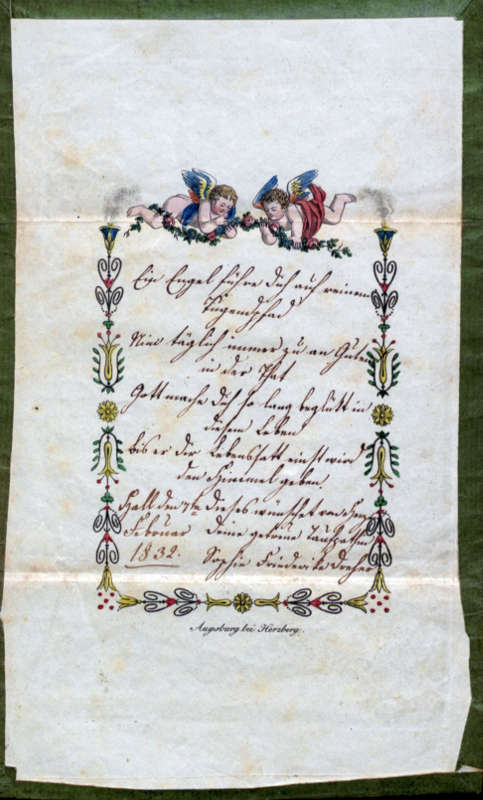 Ein Engel führe dich auf reinem
Tugendpfad
Nim täglich immer zu an Güte
in der That
Gott mache dich so lang beglükt in
diesem Leben
bis er dir Lebenssatt einst wird
den Himmel geben
Hall den 7te dieses wünschet von
Februar Deine getreue Taufpathin
1832. Sophie Friederike Dreher
Augsburg bei Herzberg.